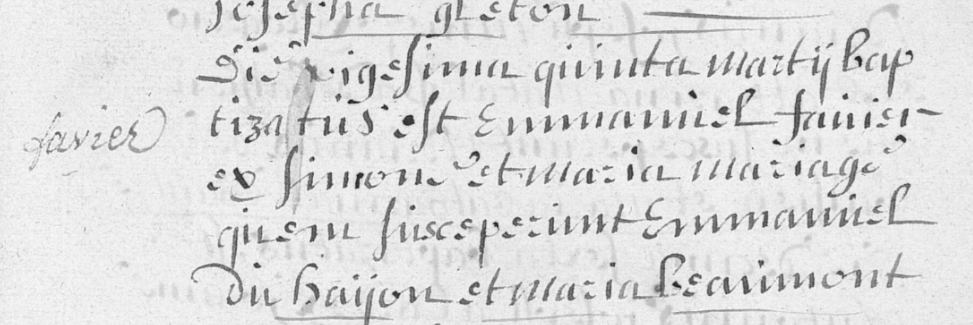 Josepha greton
Die vigesima quinta martij bap
tizatus est Emmanuel favier
favier
ex simone et maria mariage
quem susceperunt Emmanuel
Du haijon et maria beaumont